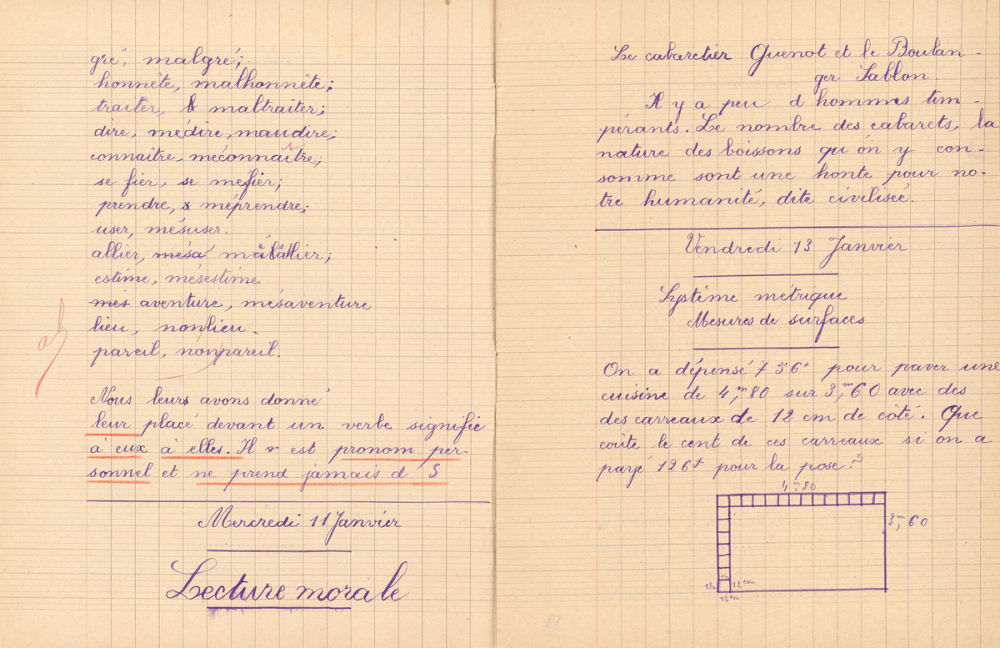 gré, malgré;
honnête, malhonnête;
traiter, maltraiter;
dire, médire, maudire;
connaître, méconnaître;
se fier, se méfier;
prendre, méprendre;
user, mésuser.
allier, mésallier;
estime, mésestime
mes aventure, mésaventure
lieu, nonlieu.
pareil, nonpareil.
ab
Nous leurs avons donné
leur placé devant un verbe signifie
à eux à elles. Il est pronom per-
sonnel et ne prend jamais d' S
Mercredi 11 Janvier
Lecture morale
Le cabaretier Quenot et le Boulan-
ger Sablon.
Il y a peu d'hommes tem-
pérants. Le nombre des cabarets, la
nature des boissons qu'on y con-
somme sont une honte pour no-
tre humanité, dite civilisée.
Vendredi 13 Janvier
Système métrique
Mesures de surfaces
On a dépensé 756f pour paver une
cuisine de 4,m80 sur 3,m60 avec des
des carreaux de 12 cm de côté. Que
coûte le cent de ces carreaux si on a
payé 126f pour la pose?
4,m80
3,m60
12cm
12cm